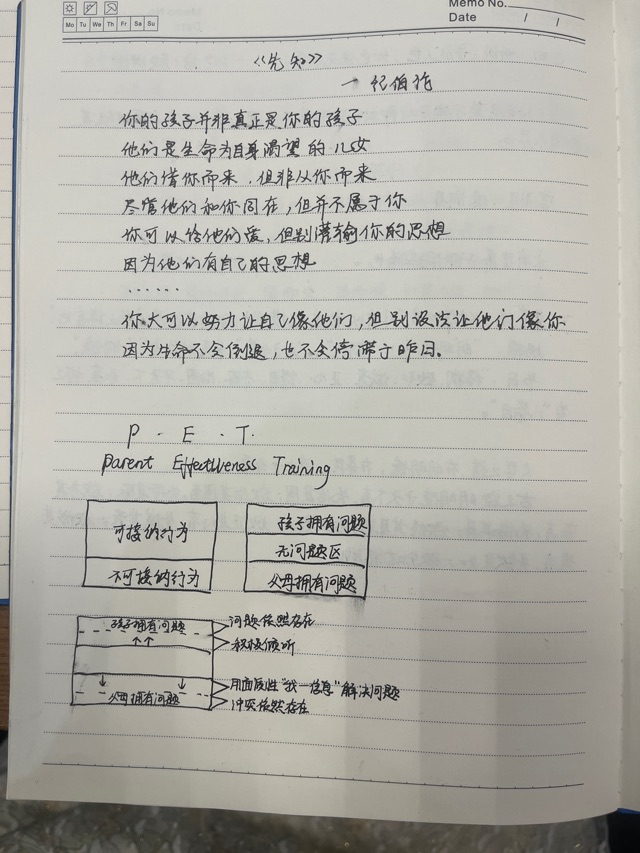 Memo No.
Mo Tu We Th Fr Sa Su
Date / /
《先知》
— 纪伯伦
你的孩子并非真正是你的孩子
他们是生命为自身渴望的儿女
他们借你而来，但非从你而来
尽管他们和你同在，但并不属于你
你可以给他们爱，但别灌输你的思想
因为他们有自己的思想
······
你大可以努力让自己像他们，但别设法让他们像你
因为生命不会倒退，也不会停滞于昨日。
P · E · T.
Parent Effectiveness Training
可接纳行为
不可接纳行为
孩子拥有问题
无问题区
父母拥有问题
孩子拥有问题
问题依然存在
积极倾听
用面质性“我—信息”解决问题
父母拥有问题
冲突依然存在